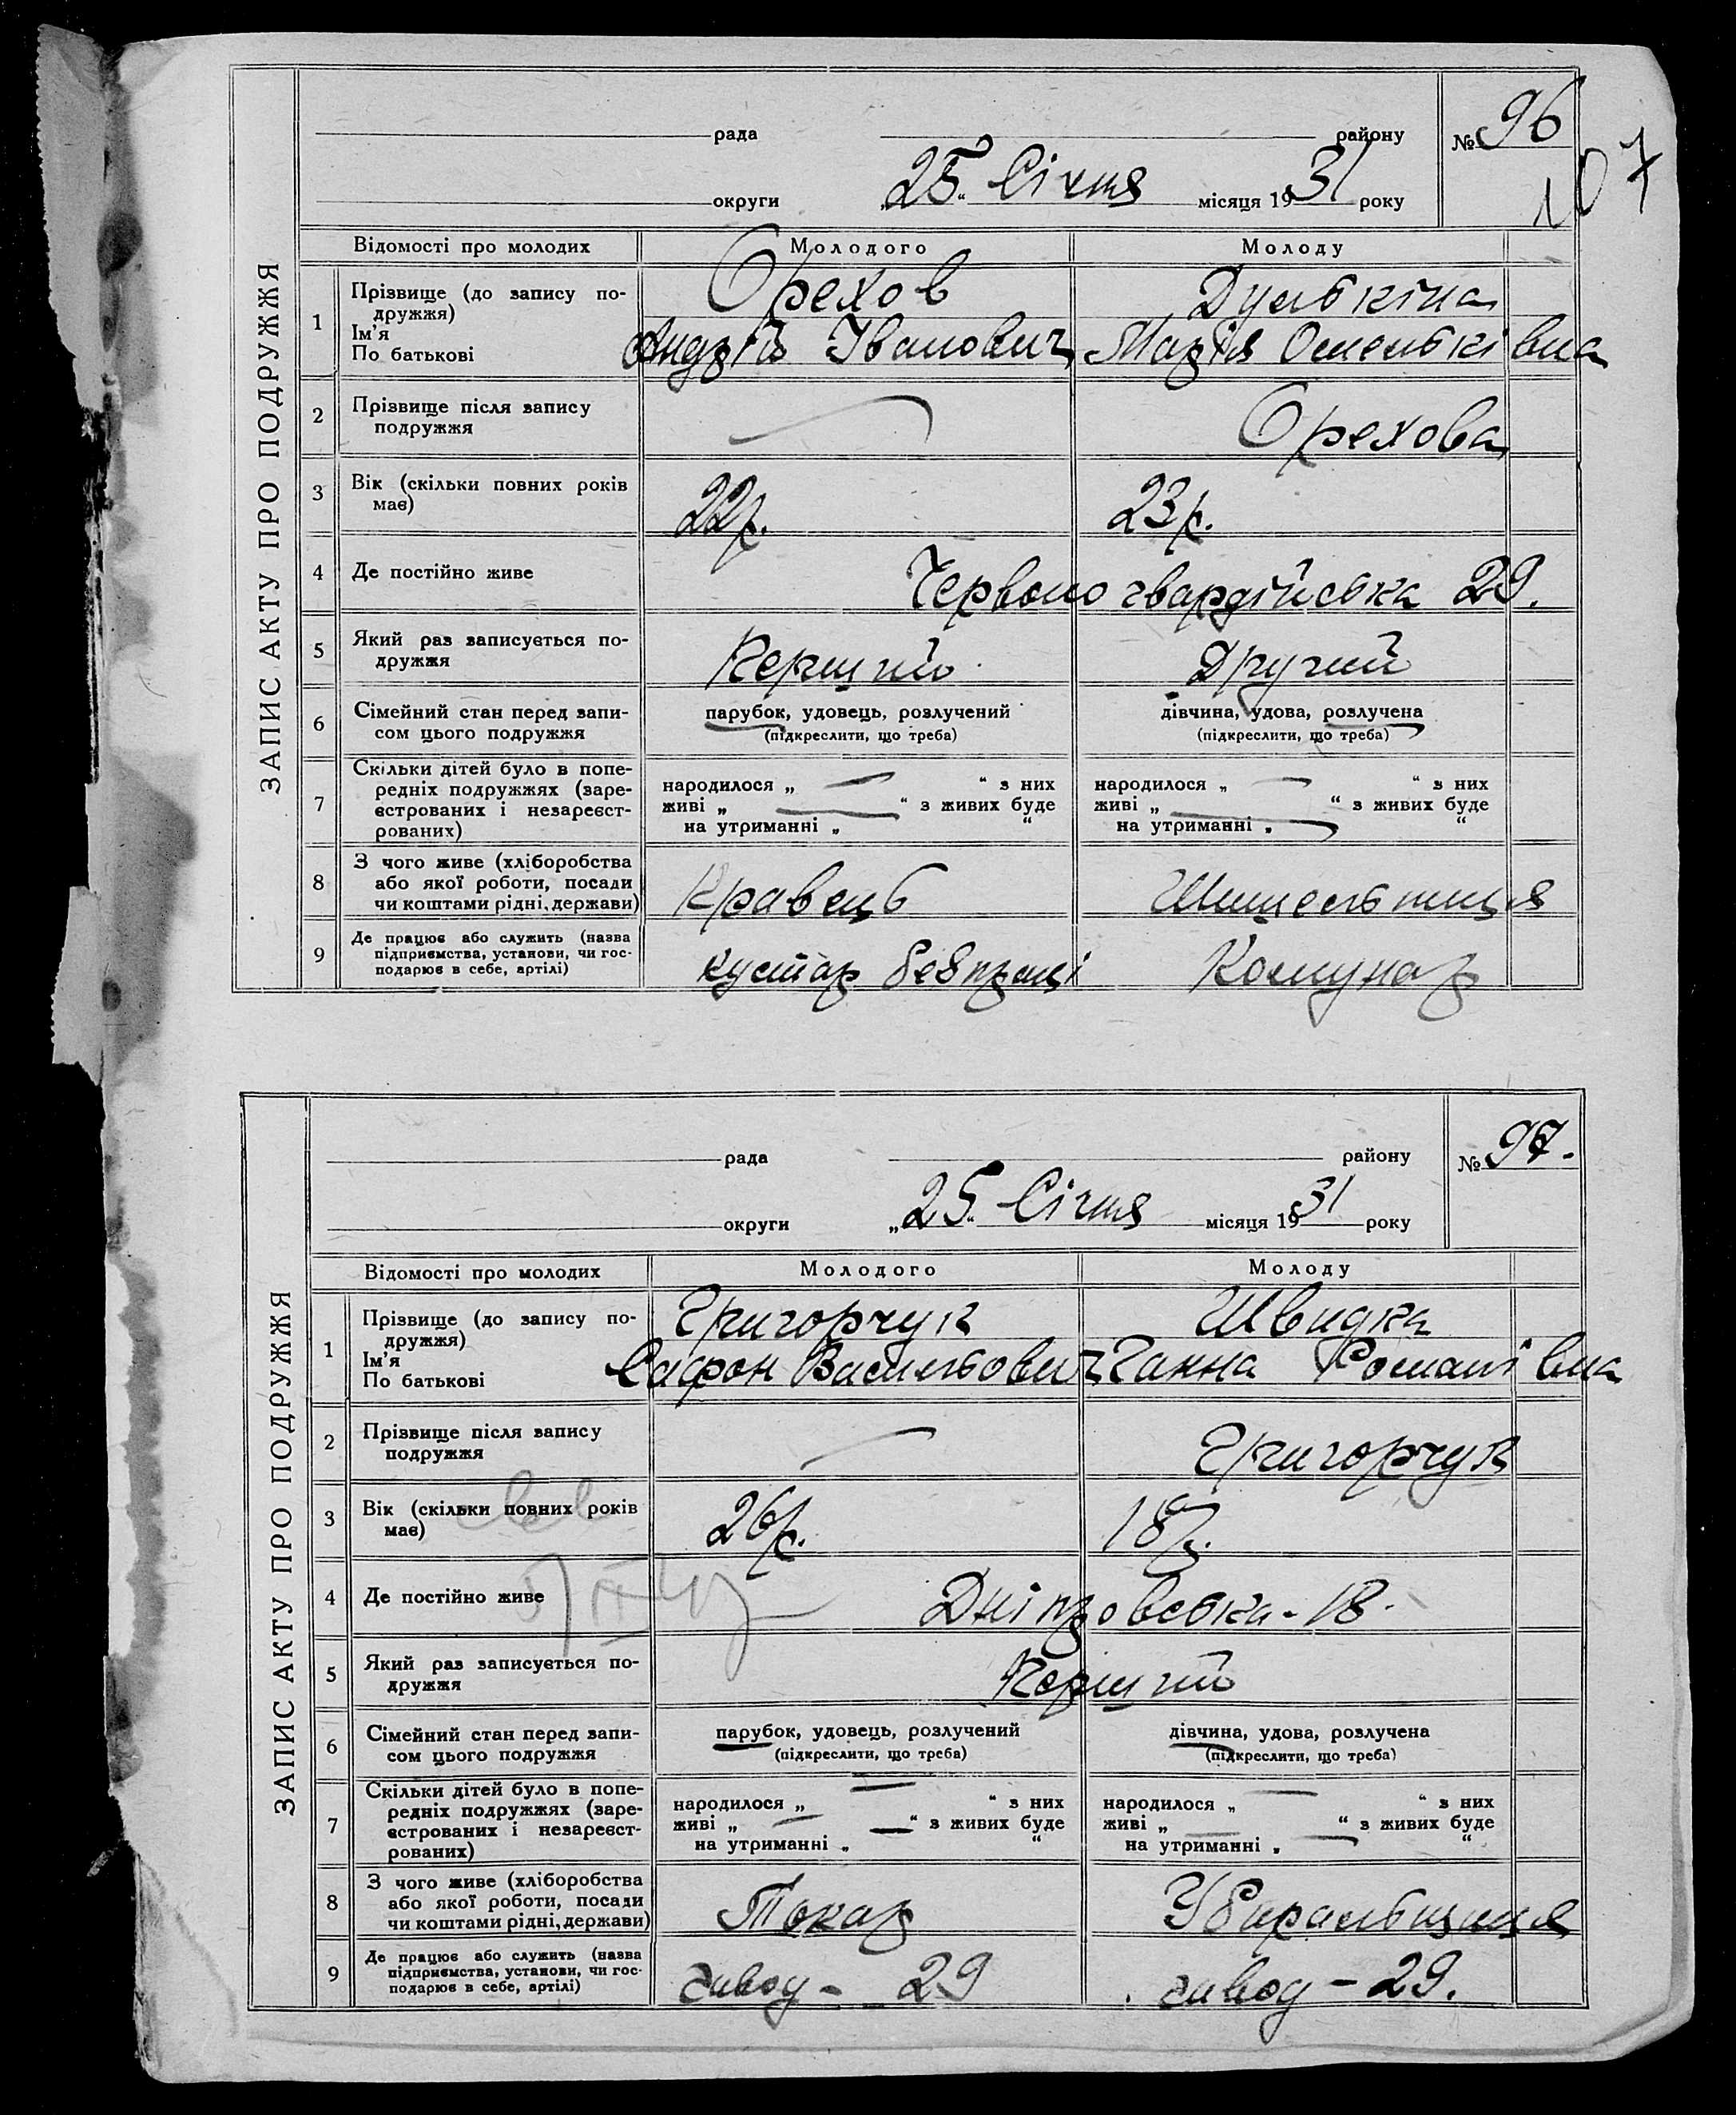 ЗАПИС АКТУ ПРО ПОДРУЖЖЯ
рада району № 96
107
округи „25“ Січня місяця 1931 року
Відомості про молодих Молодого Молоду
1 Прізвище (до запису по-
дружжя)
Ім'я
По батькові
Орехов
Андрій Іванович
Дулькіна
Марія Омельківна
2 Прізвище після запису
подружжя
Орехова
3 Вік (скільки повних років
має)
22р. 23р.
4 Де постійно живе Червоно гвардійська 29.
5 Який раз записується по-
дружжя
Перший Другий
6 Сімейний стан перед запи-
сом цього подружжя
парубок, удовець, розлучений
(підкреслити, що треба)
дівчина, удова, розлучена
(підкреслити, що треба)
7 Скільки дітей було в попе-
редніх подружжях (заре-
єстрованих і незареєст-
рованих)
народилося „ — “ з них
живі „ — “ з живих буде
на утриманні „ “
народилося „ — “ з них
живі „ — “ з живих буде
на утриманні „ “
8 З чого живе (хліборобства
або якої роботи, посади
чи коштами рідні, держави)
Кравець
9 Де працює або служить (назва
підприємства, установи, чи гос-
подарює в себе, артілі)
кустар безпраці Комунар
ЗАПИС АКТУ ПРО ПОДРУЖЖЯ
рада району № 97.
округи „25“ Січня місяця 1931 року
Відомості про молодих Молодого Молоду
1 Прізвище (до запису по-
дружжя)
Ім'я
По батькові
Григорчук
Сафон Васильович
Швидка
Ганна Романівна
2 Прізвище після запису
подружжя
— Григорчук
3 Вік (скільки повних років
має)
26р. 18р.
4 Де постійно живе Дніпровська - 18.
5 Який раз записується по-
дружжя
Перший
6 Сімейний стан перед запи-
сом цього подружжя
парубок, удовець, розлучений
(підкреслити, що треба)
дівчина, удова, розлучена
(підкреслити, що треба)
7 Скільки дітей було в попе-
редніх подружжях (заре-
єстрованих і незареєст-
рованих)
народилося „ — “ з них
живі „ — — “ з живих буде
на утриманні „ “
народилося „ — “ з них
живі „ — “ з живих буде
на утриманні „ — “
8 З чого живе (хліборобства
або якої роботи, посади
чи коштами рідні, держави)
Токар Убиральщиця
9 Де працює або служить (назва
підприємства, установи, чи гос-
подарює в себе, артілі)
завод - 29 завод - 29.